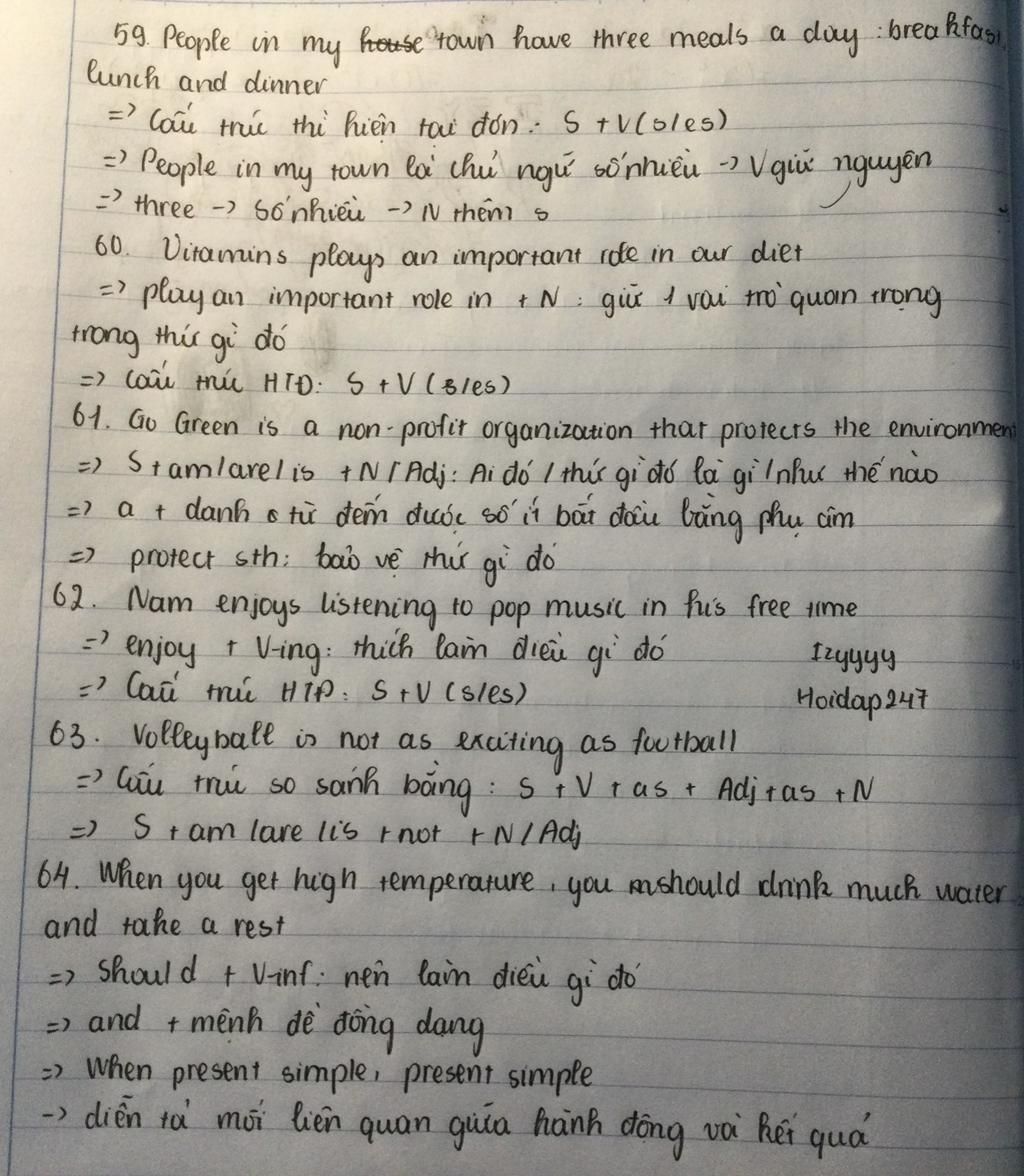 59. People in my house town have three meals a day : breakfast,
lunch and dinner
=> Cấu trúc thì hiện tại đơn : S + V(s/es)
=> People in my town là chủ ngữ số nhiều -> V giữ nguyên
=> three -> số nhiều -> N thêm s
60. Vitamins plays an important role in our diet
=> play an important role in + N : giữ 1 vai trò quan trọng
trong thứ gì đó
=> Cấu trúc HTĐ: S + V (s/es)
61. Go Green is a non-profit organization that protects the environment
=> S + am/are/is + N/Adj : Ai đó / thứ gì đó là gì / như thế nào
=> a + danh từ đếm được số ít bắt đầu bằng phụ âm
=> protect sth: bảo vệ thứ gì đó
62. Nam enjoys listening to pop music in his free time
=> enjoy + V-ing: thích làm điều gì đó Izyyyy
=> Cấu trúc HTĐ: S + V (s/es) Hoidap247
63. Volleyball is not as exciting as football
=> Cấu trúc so sánh bằng : S + V + as + Adj + as + N
=> S + am /are /is + not + N/Adj
64. When you get high temperature, you should drink much water
and take a rest
=> Should + V-inf: nên làm điều gì đó
=> and + mệnh đề đồng dạng
=> When present simple, present simple
-> diễn tả mối liên quan giữa hành động và kết quả